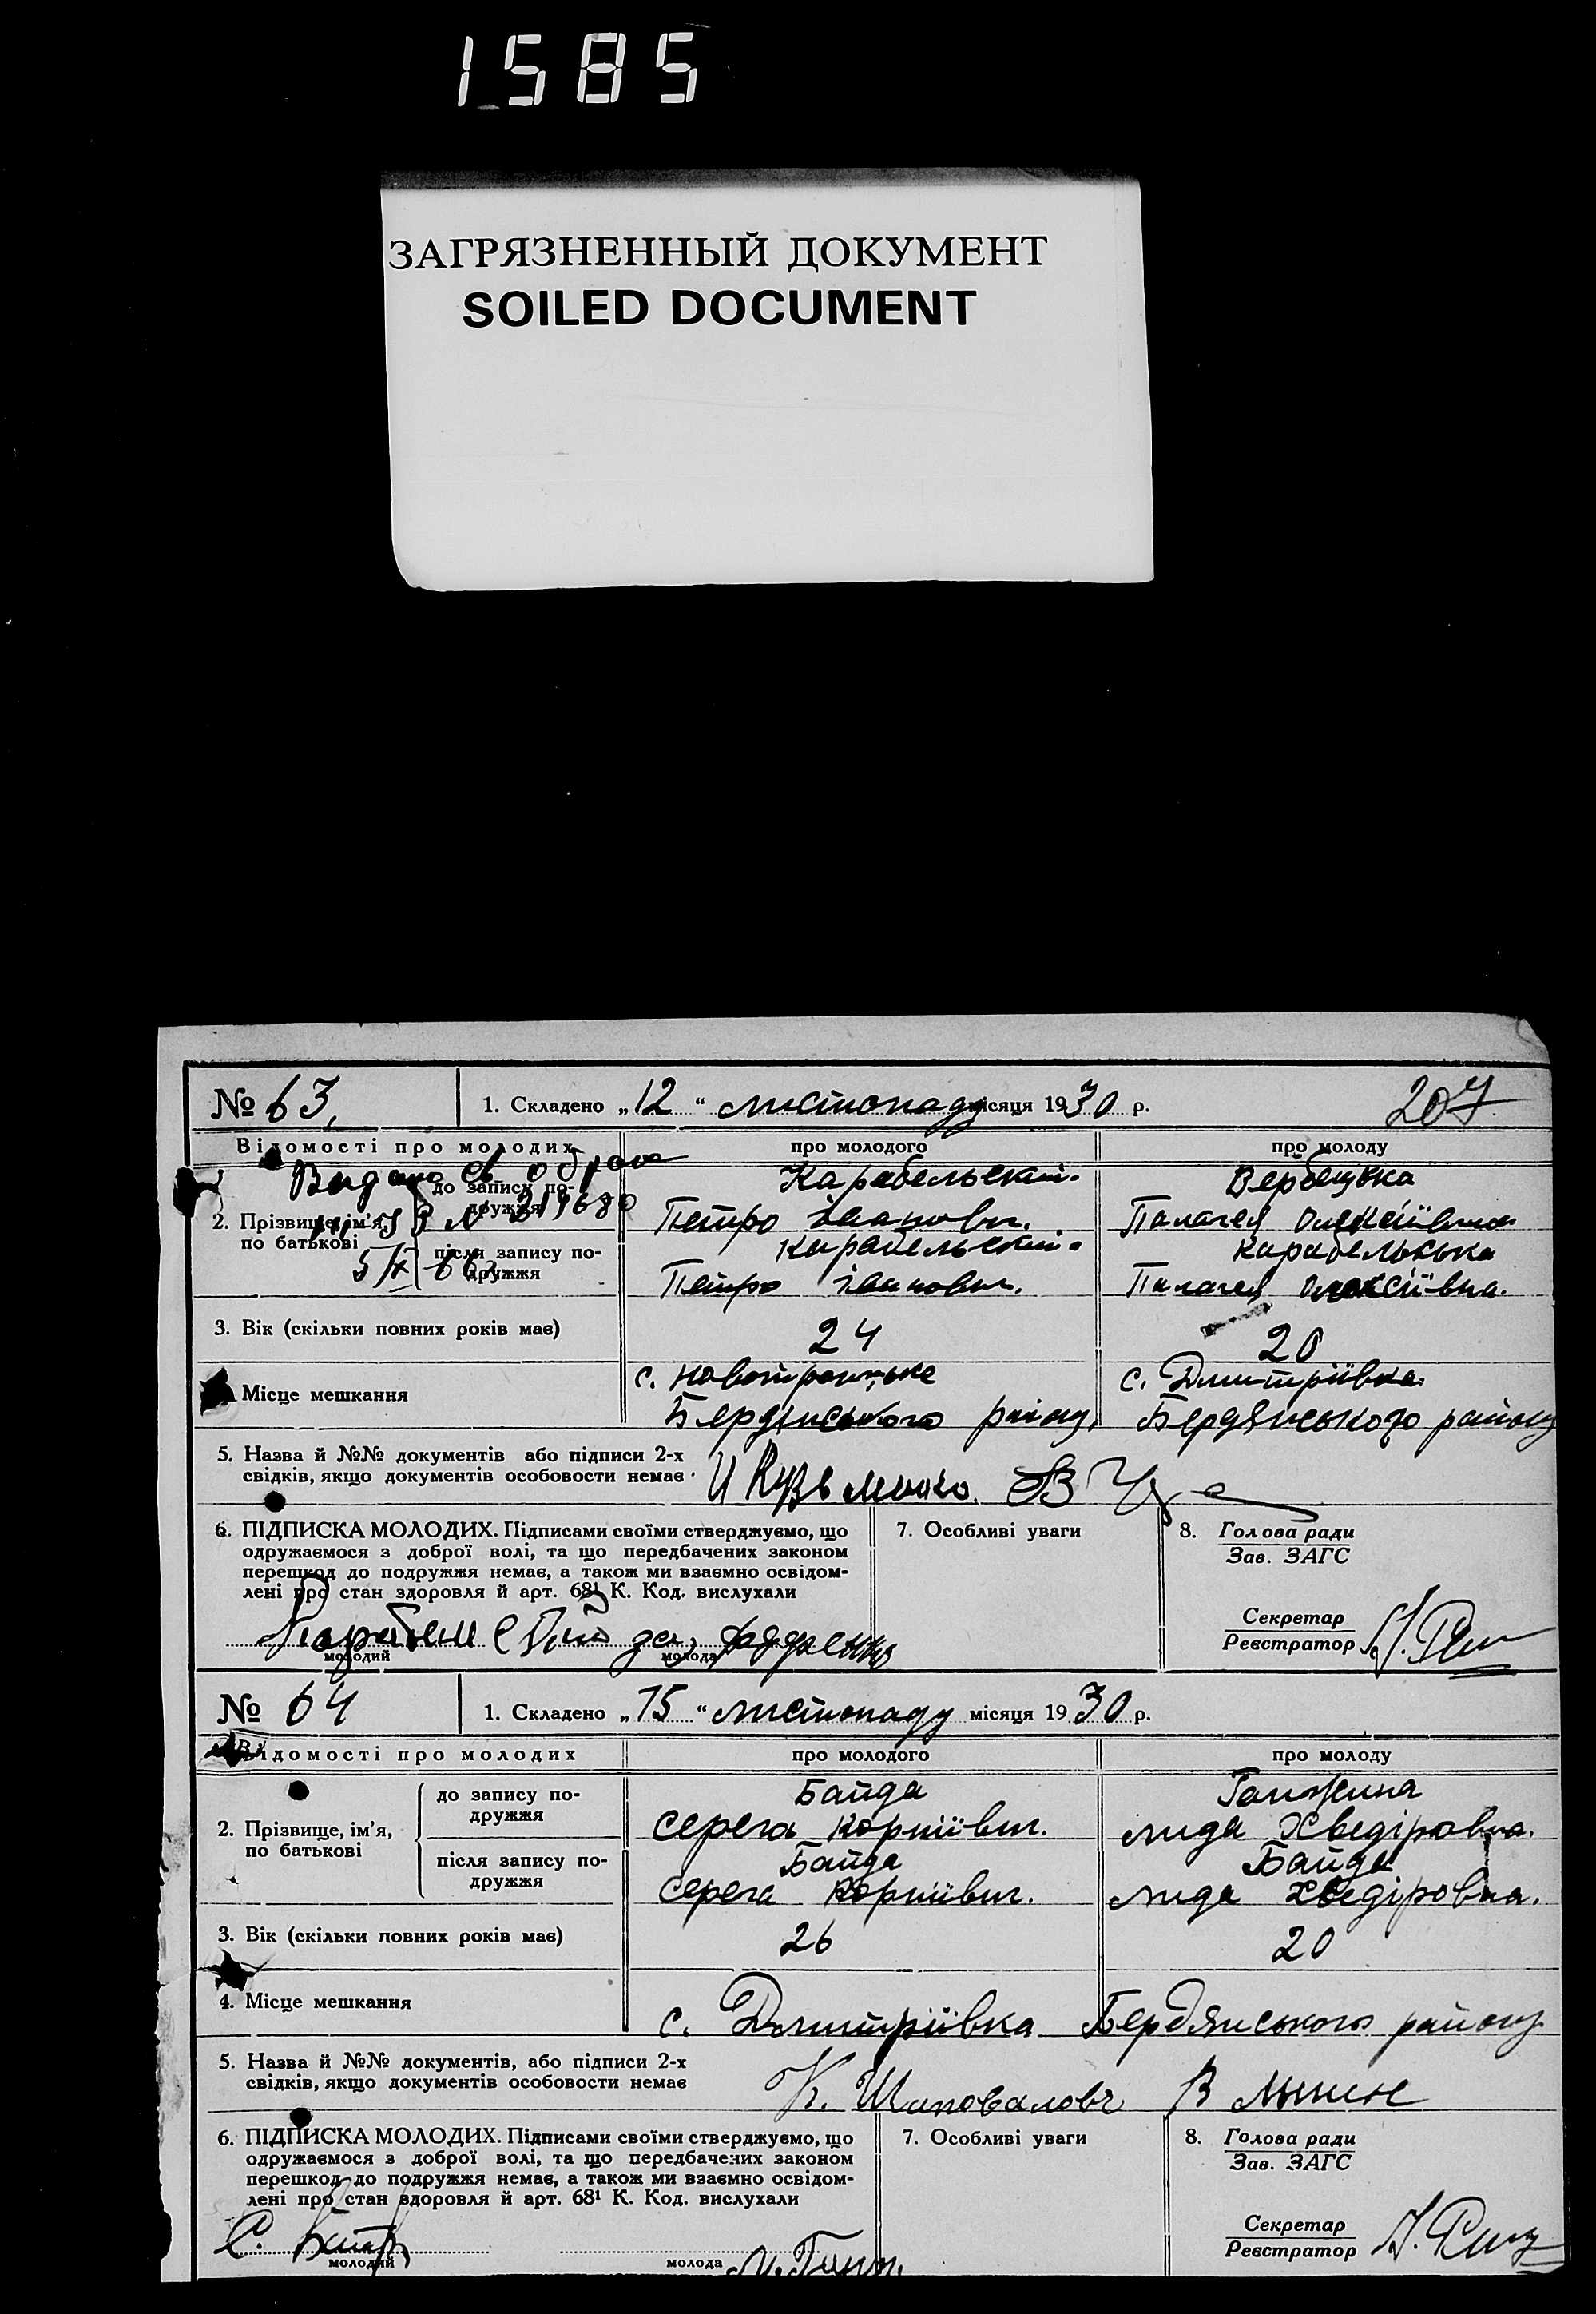 1585
ЗАГРЯЗНЕННЫЙ ДОКУМЕНТ
SOILED DOCUMENT
№ 63, 1. Складено „12“ листопаду місяця 1930 р. 207
Відомості про молодих про молодого про молоду
Видано св обрано
до запису подружжя Карабельский. Вербецька
2. Прізвище, ім’я, по батькові № 219680 Петро Іванович. Палагея Олексіївна
5/X 66 після запису подружжя Карабельский. Карабелькька
Петро Іванович. Палагея Олексіївна.
3. Вік (скільки повних років має) 24 20
Місце мешкання с. Новотроицьке с. Дмитріївка
Бердянського району, Бердянського району
5. Назва й №№ документів або підписи 2-х
свідків, якщо документів особовости немає И Кузьменко.
6. ПІДПИСКА МОЛОДИХ. Підписами своїми стверджуємо, що 7. Особливі уваги 8. Голова ради
одружаємося з доброї волі, та що передбачених законом Зав. ЗАГС
перешкод до подружжя немає, а також ми взаємно освідом-
лені про стан здоровля й арт. 68¹ К. Код. вислухали
Секретар
молодий молода Реєстратор
№ 64 1. Складено „15“ листопаду місяця 1930 р.
Відомості про молодих про молодого про молоду
до запису по- Байда Ганжина
дружжя
2. Прізвище, ім’я, Серега Корніївич. Лида Хведіровна.
по батькові
після запису по- Байда Байда
дружжя Серега Корніївич. Лида Хведіровна.
3. Вік (скільки повних років має) 26 20
4. Місце мешкання с. Дмитріївка Бердянського району
5. Назва й №№ документів, або підписи 2-х
свідків, якщо документів особовости немає К. Шаповалов
6. ПІДПИСКА МОЛОДИХ. Підписами своїми стверджуємо, що 7. Особливі уваги 8. Голова ради
одружаємося з доброї волі, та що передбачених законом Зав. ЗАГС
перешкод до подружжя немає, а також ми взаємно освідом-
лені про стан здоровля й арт. 68¹ К. Код. вислухали
Секретар
молодий молода Реєстратор